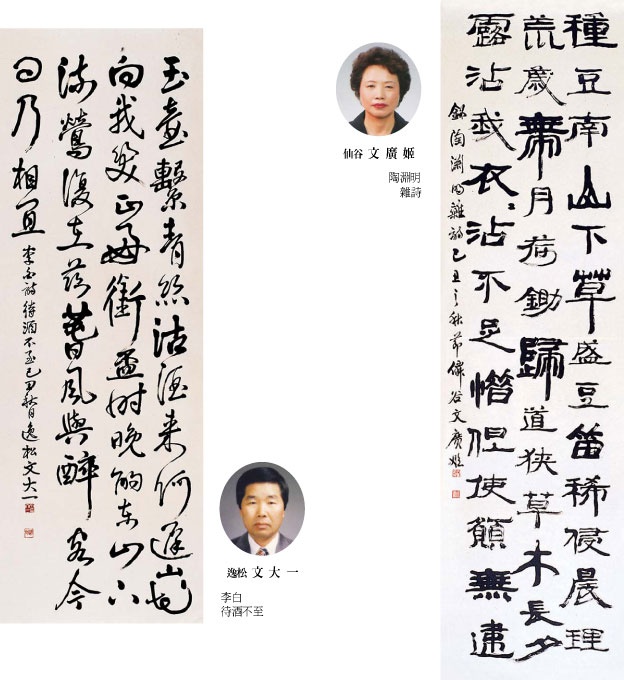 種豆南山下草盛豆苗稀侵晨理
荒薉帶月荷鋤歸道狹草木長夕
露沾我衣々沾不足惜但使願無違
錄陶淵明雜詩己丑之秋節僊谷文廣姬
仙谷 文廣姬
陶淵明
雜詩
玉壺繫青絲沽酒来何遲山花
向我笑正好銜盃時晚酌東山下
流鶯復在茲春風與醉客今
日乃相宜
李白詩待酒不至己丑秋日逸松文大一
逸松 文大一
李白
待酒不至